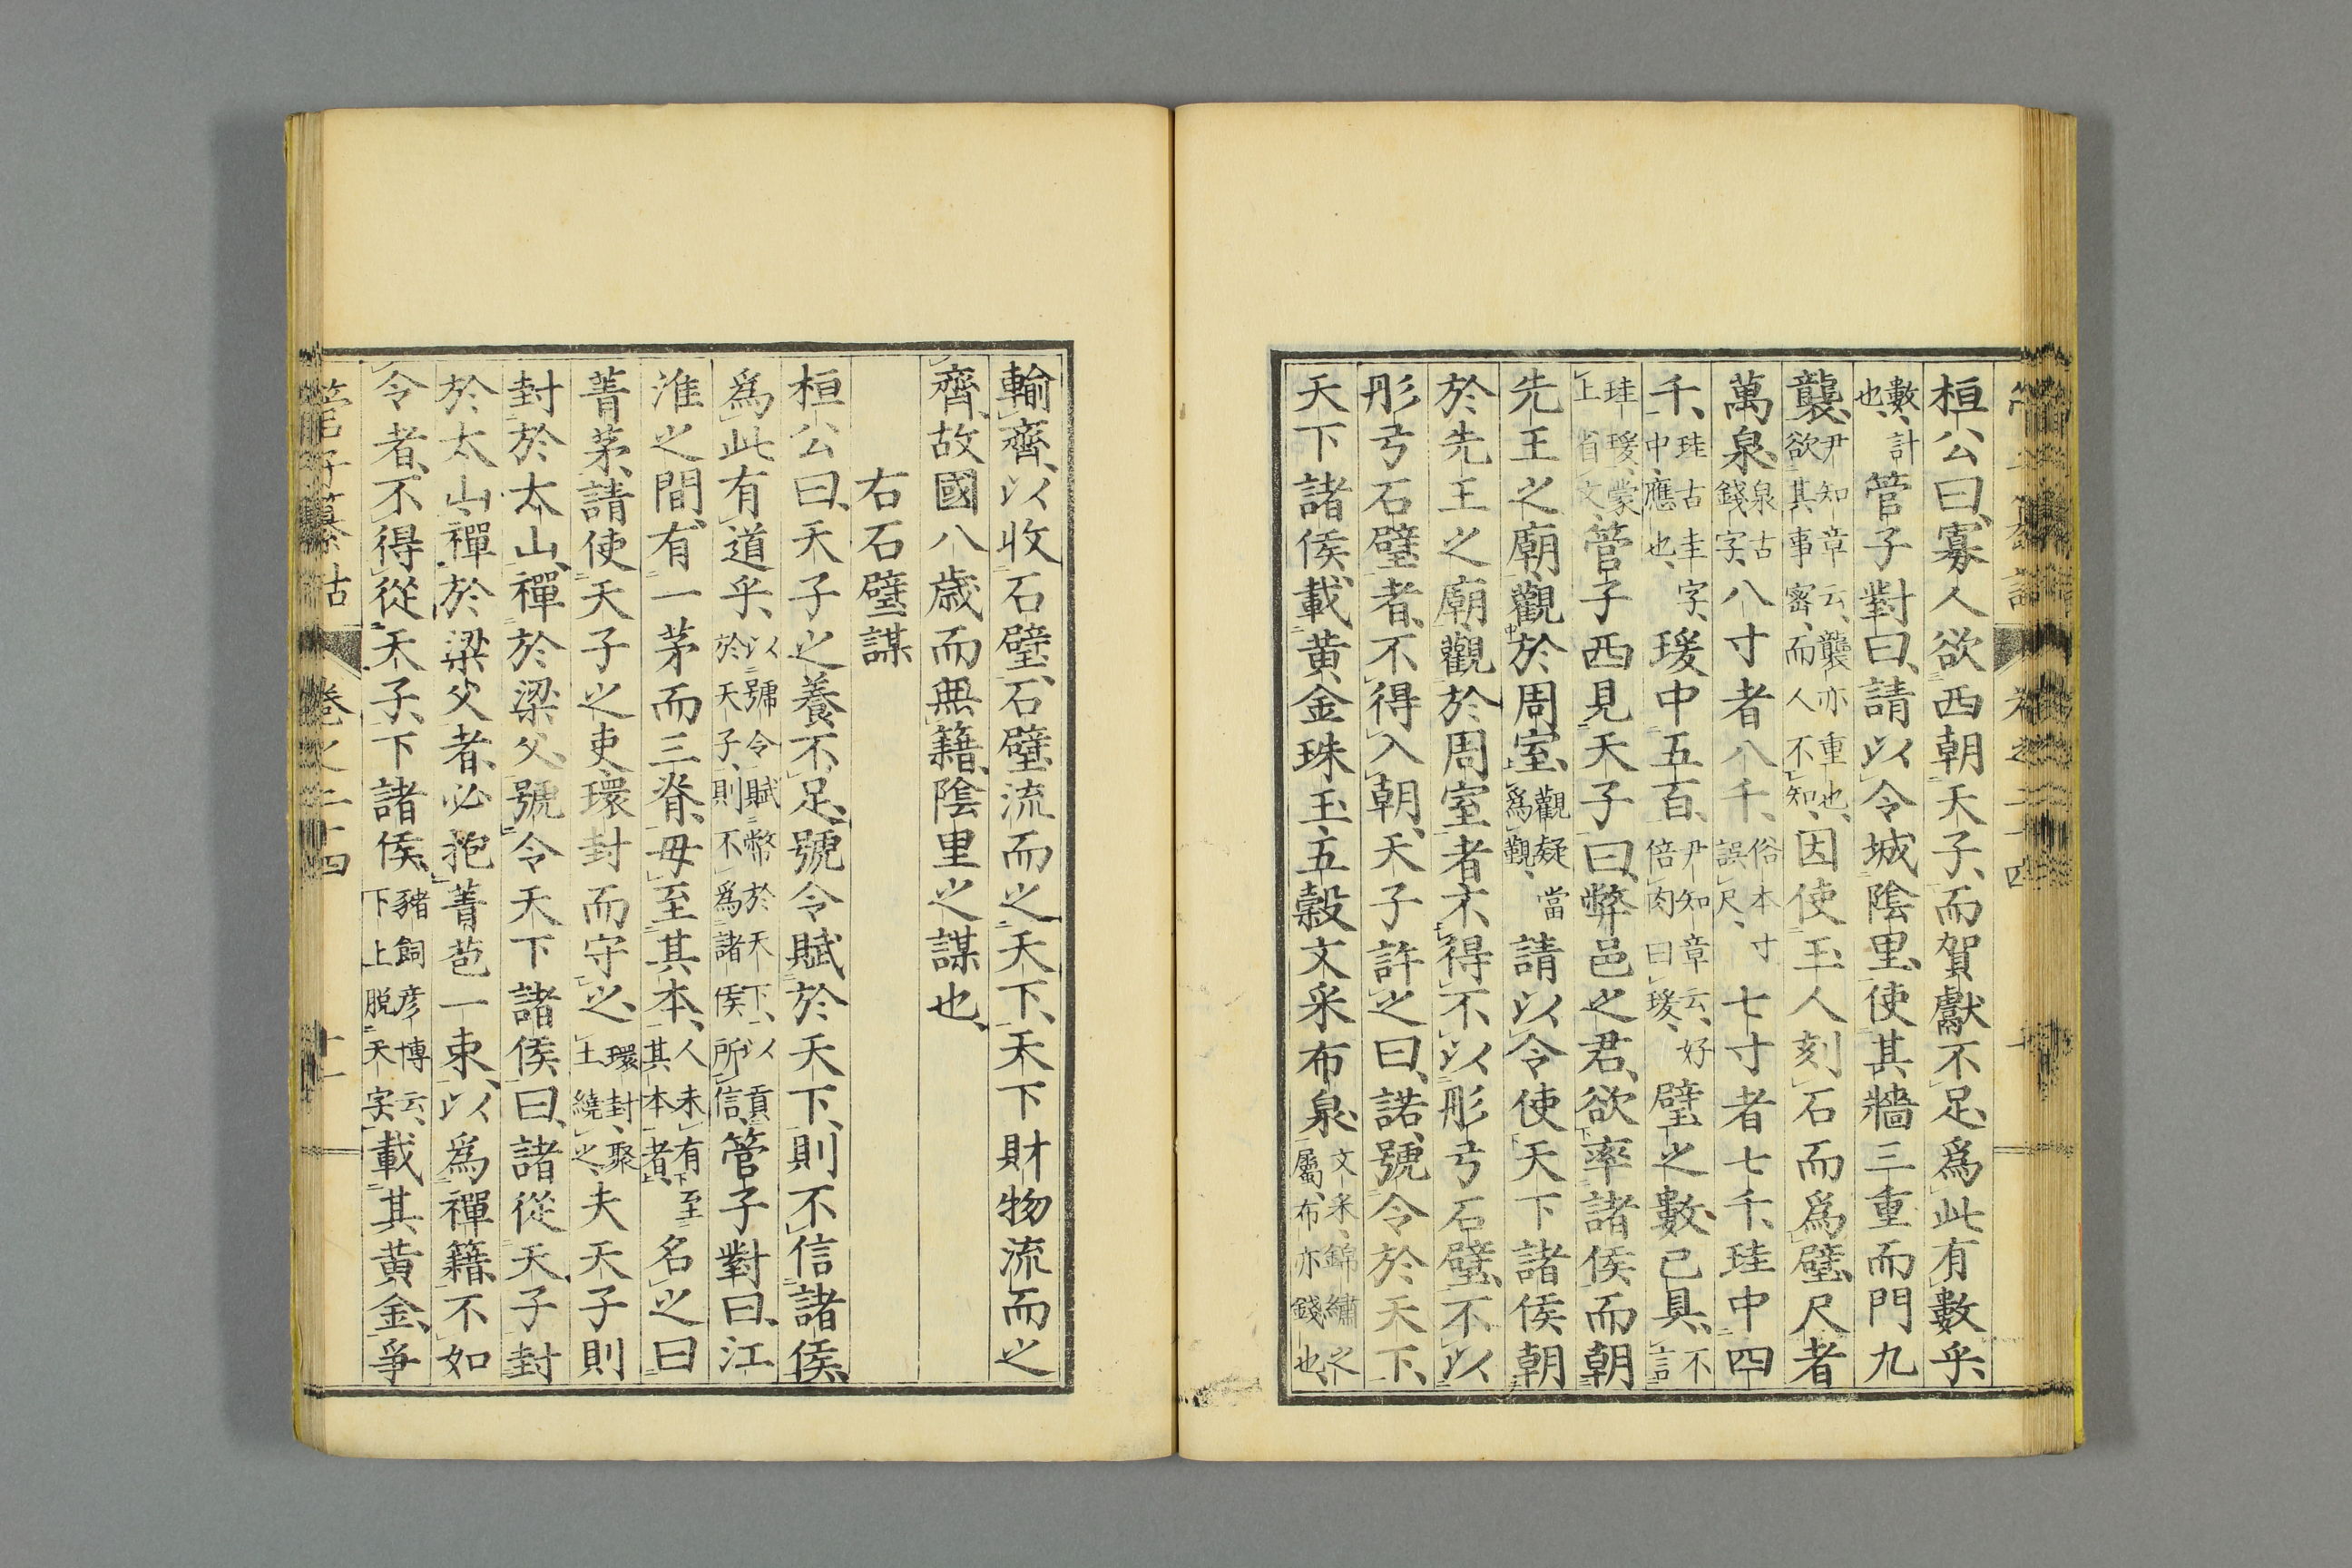 桓公曰、寡人欲西朝天子、而賀獻不足、爲此有數乎、
數、計也、管子對曰、請以令城陰里、使其牆三重而門九
襲、尹知章云、襲亦重也、欲其事密、而人不知、因使玉人刻石而爲璧、尺者
萬泉、泉古錢字、八寸者八千、俗本寸誤尺、七寸者七千、珪中四
千、珪古圭字、中、應也、瑗中五百、尹知章云、好倍肉曰瑗、璧之數已具、不言
珪瑗、蒙上省文、管子西見天子曰、弊邑之君、欲率諸侯而朝
先王之廟、觀於周室、觀疑當爲覲、請以令使天下諸侯朝
於先王之廟、觀於周室者、不得不以彤弓石璧、不以
彤弓石璧者、不得入朝、天子許之曰、諾、號令於天下、
天下諸侯、載黄金珠玉五穀文采布泉、文采、錦繡之屬、布亦錢也、
輸齊、以收石璧、石璧流而之天下、天下財物流而之
齊、故國八歳而無籍、陰里之謀也、
右石璧謀
桓公曰、天子之養不足、號令賦於天下、則不信諸侯、
爲此有道乎、以號令賦幣於天下、以貢於天子、則不爲諸侯所信、管子對曰、江
淮之間、有一茅而三脊、毋至其本、人未有至其本者、名之曰
菁茅、請使天子之吏、環封而守之、環封、聚土繞之、夫天子則
封於太山、禪於梁父、號令天下諸侯曰、諸從天子封
於太山、禪於梁父者、必抱菁茆一束、以爲禪籍、不如
令者、不得從天子、下諸侯、豬飼彦博云、下上脱天字、載其黃金、爭
管子纂詁 卷之二十四 十一